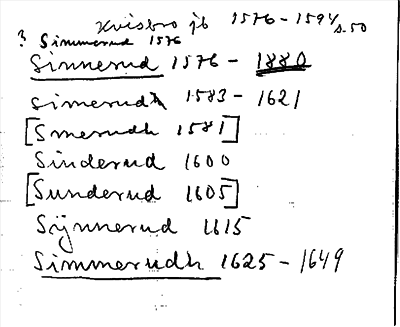 Kvisbro jb 1576-1594 s.50
? Simmerud 1576
Sinnerud 1576 - 1880
Simerudh 1583 - 1621
[Smerudh 1581]
Sinderud 1600
[Sunderud 1605]
Sÿnnerud 1615
Simmerudh 1625 - 1649